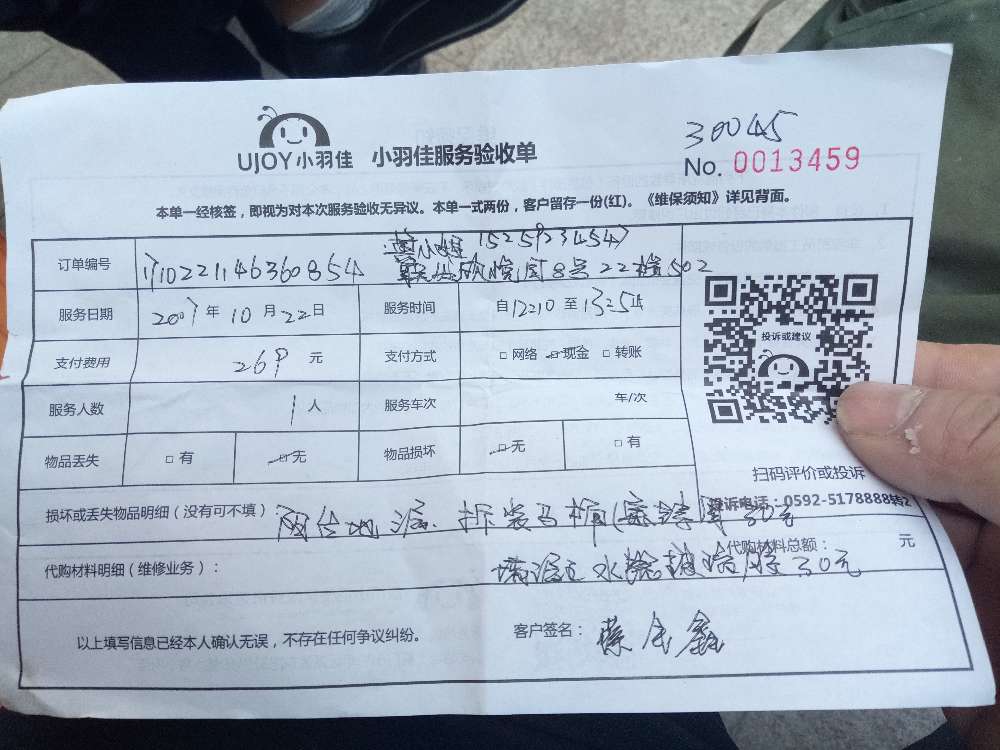 30045
UJOY小羽佳 小羽佳服务验收单
No. 0013459
本单一经核签，即视为对本次服务验收无异议。本单一式两份，客户留存一份(红)。《维保须知》详见背面。
小姐 15259234547
订单编号 1710221146360854 8号22楼502
服务日期 2017年10月22日 服务时间 自12:10至13:25止
投诉或建议
支付费用 269 元 支付方式 □ 网络 □ 现金 □ 转账
服务人数 1 人 服务车次 车/次
物品丢失 □ 有 □ 无 物品损坏 □ 无 □ 有
扫码评价或投诉
投诉电话：0592-5178888转2
损坏或丢失物品明细（没有可不填） 阳台地漏. 拆装马桶 30元
代购材料总额： 元
代购材料明细（维修业务）： 30元
以上填写信息已经本人确认无误，不存在任何争议纠纷。 客户签名：